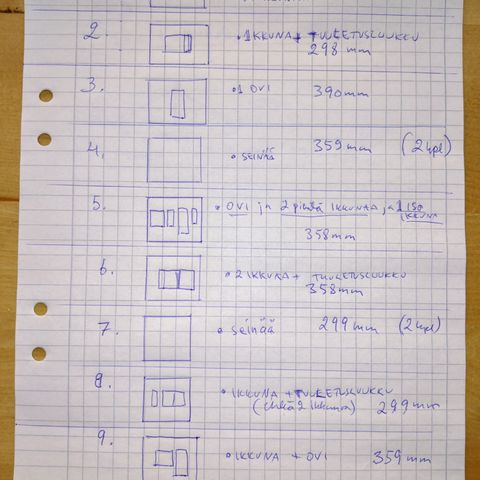 2. • 1 IKKUNA + TUULETUSLUUKKU
298 mm
3. • 1 OVI 390mm
4. • SEINÄÄ 359 mm (2 kpl)
5. • OVI ja 2 pientä IKKUNAA, ja 1 ISO
IKKUNA
358mm
6. • 2 IKKUNA + TUULETUSLUUKKU
358mm
7. • seinää 299 mm (2 kpl)
8. • IKKUNA + TUULETUSLUUKKU
(ehkä 2 ikkunaa) 299mm
9. • IKKUNA + OVI 359 mm